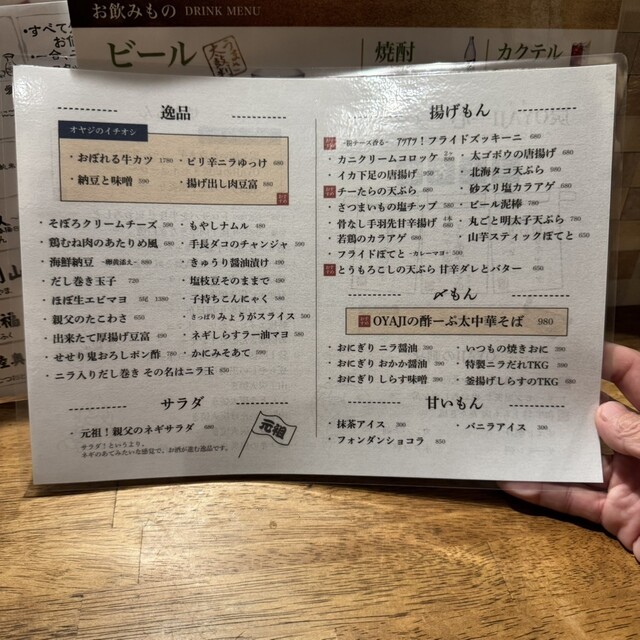 お飲みもの DRINK MENU
ビール
焼酎
カクテル
逸品
オヤジのイチオシ
・おぼれる牛カツ 1780
・ピリ辛ニラゆっけ 680
・納豆と味噌 590
・揚げ出し肉豆富 880
・そぼろクリームチーズ 590
・もやしナムル 490
・鶏むね肉のあたりめ風 680
・手長ダコのチャンジャ 500
・海鮮納豆 -卵黄添え- 880
・きゅうり醤油漬け 490
・だし巻き玉子 720
・塩枝豆そのままで 490
・ほぼ生エビマヨ 5尾 1380
・子持ちこんにゃく 580
・親父のたこわさ 650
・さっぱりみょうがスライス 500
・出来たて厚揚げ豆富 490
・ネギしらすラー油マヨ 580
・せせり鬼おろしポン酢 780
・かにみそあて 500
・ニラ入りだし巻き その名はニラ玉 850
サラダ
・元祖！親父のネギサラダ 680
サラダ？というより、
ネギのあてみたいな感覚で、お酒が進む逸品です。
元祖
揚げもん
-粉チーズ香る- アツアツ！フライドズッキーニ 680
・カニクリームコロッケ
・太ゴボウの唐揚げ 680
・イカ下足の唐揚げ 580
・北海タコ天ぷら 590
・チーたらの天ぷら 680
・砂ズリ塩カラアゲ 580
・さつまいもの塩チップ 580
・ビール泥棒 780
・骨なし手羽先甘辛揚げ 4本 680
・丸ごと明太子天ぷら 780
・若鶏のカラアゲ 680
・山芋スティックぽてと 650
・フライドぽてと -カレーマヨ- 500
・とうもろこしの天ぷら 甘辛ダレとバター 650
〆もん
OYAJIの酢ーぷ太中華そば 980
・おにぎり ニラ醤油 300
・いつもの焼きおに 300
・おにぎり おかか醤油 300
・特製ニラだれTKG 590
・おにぎり しらす味噌 390
・釜揚げしらすのTKG 680
甘いもん
・抹茶アイス 300
・バニラアイス 300
・フォンダンショコラ 650